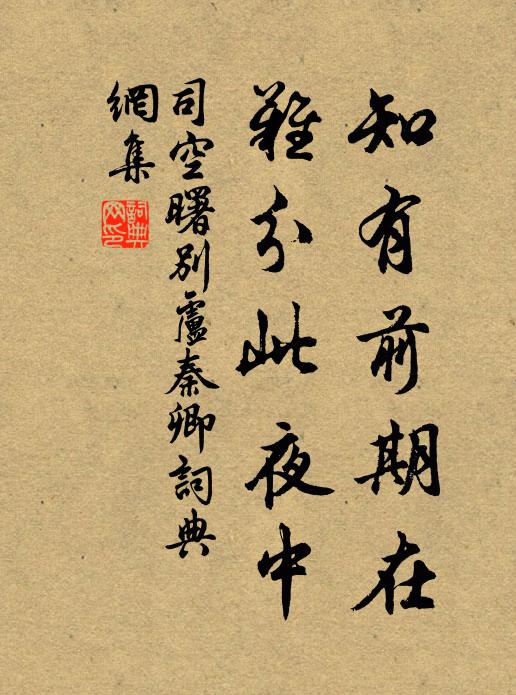 知有前期在
難分此夜中
司空曙別盧秦卿詞典
網集
詞典
网印